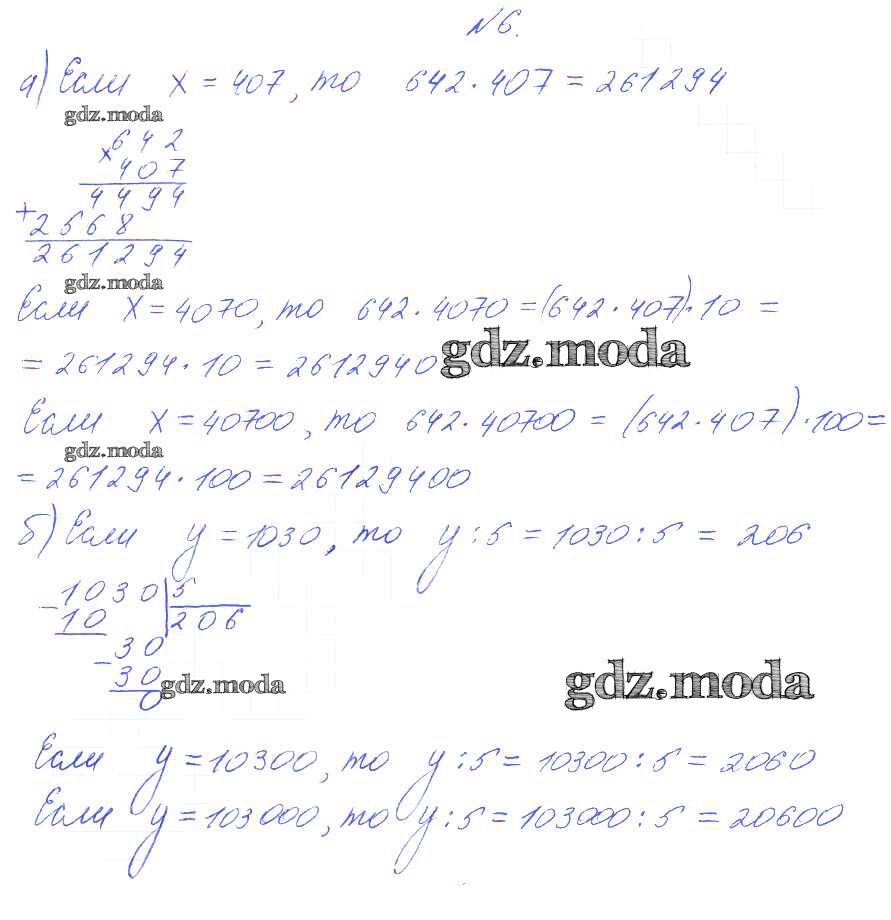 №6.
а) Если x = 407, то 642 · 407 = 261294
gdz.moda
642
× 407
4494
+ 2568
261294
gdz.moda
Если x = 4070, то 642 · 4070 = (642 · 407) · 10 =
= 261294 · 10 = 2612940 gdz.moda
Если x = 40700, то 642 · 40700 = (642 · 407) · 100 =
gdz.moda
= 261294 · 100 = 26129400
б) Если y = 1030, то y : 5 = 1030 : 5 = 206
– 1030 | 5
10 | 206
– 30
30 gdz.moda
0
gdz.moda
Если y = 10300, то y : 5 = 10300 : 5 = 2060
Если y = 103000, то y : 5 = 103000 : 5 = 20600